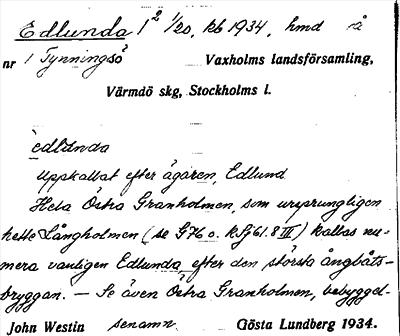 Edlunda 1² 1/20, rb 1934, hmd på
nr 1 Tynningsö Vaxholms landsförsamling,
Värmdö skg, Stockholms l.
edlũnda
Uppkallat efter ägaren, Edlund
Hela Östra Granholmen, som ursprungligen
hette Långholmen (se G 76 o. kSj 61.8 III) kallas nu-
mera vanligen Edlunda efter den största ångbåts-
bryggan. — Se även Östra Granholmen, bebyggel-
John Westin senamn. Gösta Lundberg 1934.